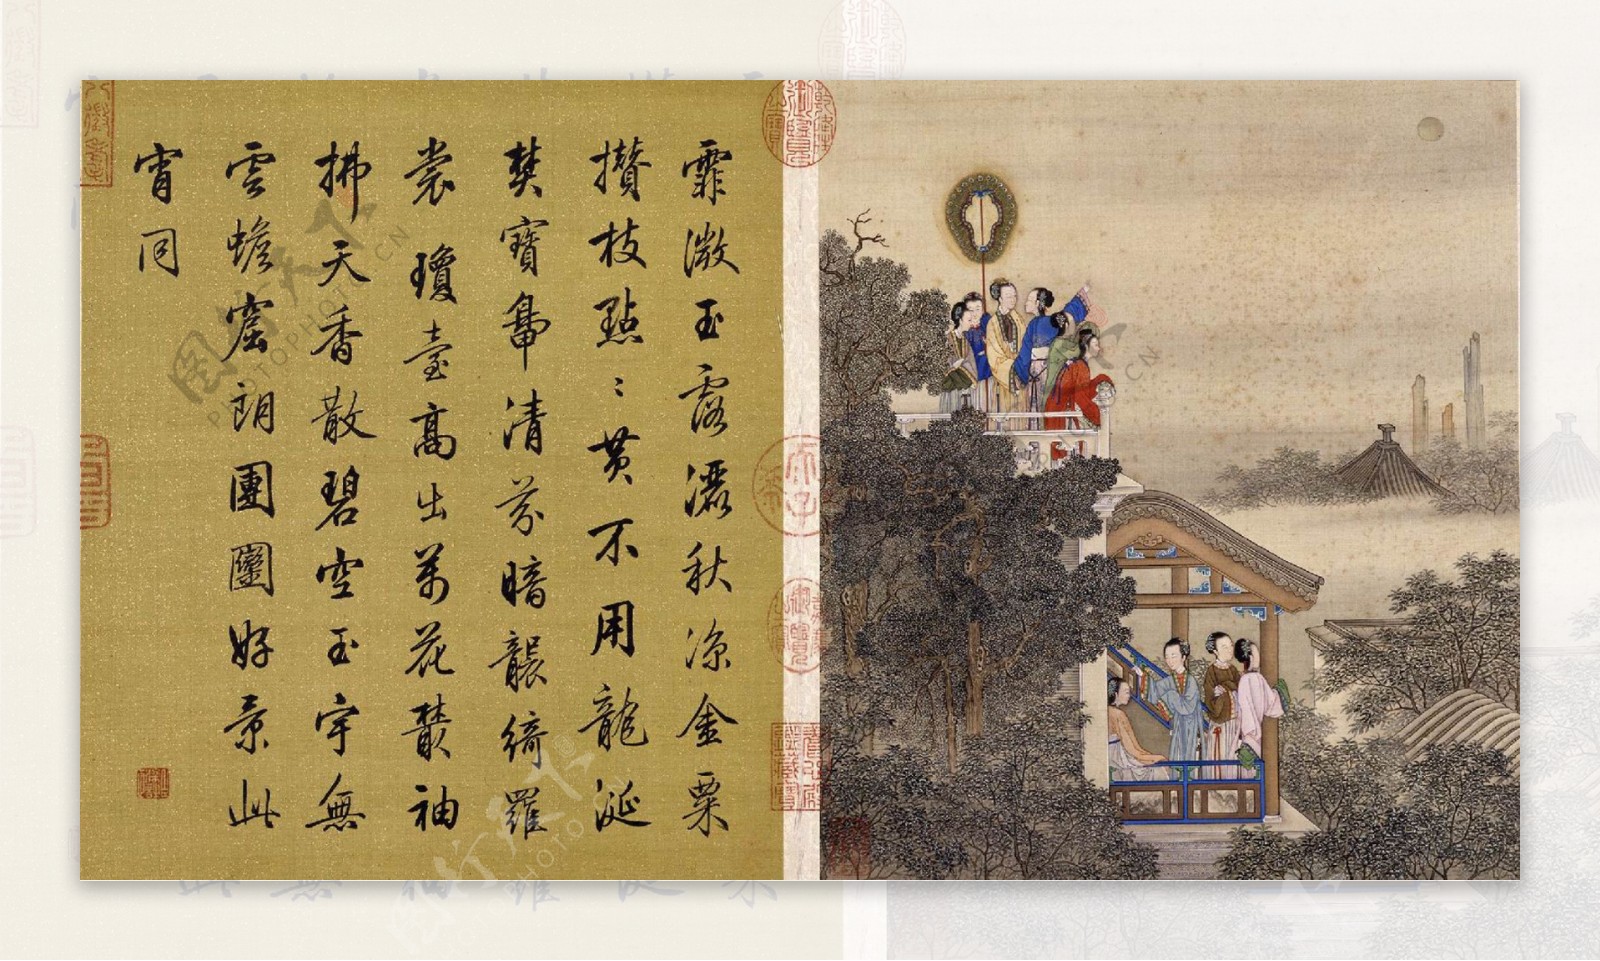 霏微玉露洒秋凉金粟
攒枝點〻黄不用龍涎
焚寶鼎清芬暗襲綺羅
裳 瓊臺髙出萬花叢袖
拂天香散碧空玉宇無
雲蟾窟朗團圞好景此
宵同